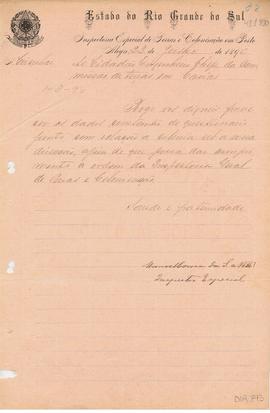 Estado do Rio Grande do Sul
Inspectoria Especial de Terras e Colonisação em Porto
Alegre, 23 de Junho de 189
Ao Cidadão Engenheiro Chefe da Com
missão de terras em Caxias
Rogo vos digneis forne
cer os dados constantes do questionario
junto com relação a colonia a
afim de que possa dar cumpri
mento a ordem da Inspectoria Geral
de Terras e Colonisação
Saude e fraternidade
Inspector Especial